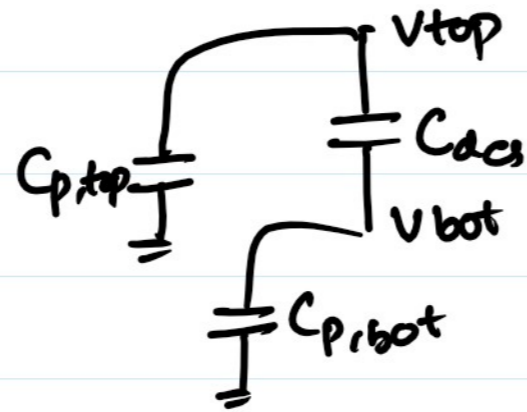 Vtop
Cdcs
Cp,top
Vbot
Cp,bot